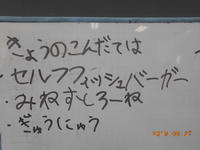 きょうのこんだては
・セルフフィッシュバーガー
・みねすとろーね
・ぎゅうにゅう